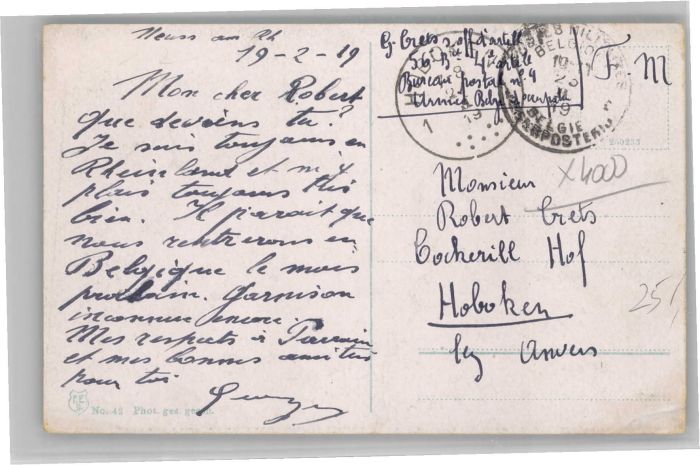 Neuss am Rh
19-2-19
Mon cher Robert
que deviens tu?
Je suis toujours en
Rheinland et m'y
plais toujours très
bien. Il parait que
nous rentrerons en
Belgique le mois
prochain. Garnison
inconnue encore.
Mes respects à Parrain
et mes bonnes amitiés
pour toi
Georges
No. 42 Phot. ges. gesch.
G. Crets s/off d'artie
4e artie
Bureau postal no 4
Armée Belge
F.M
POSTES MILITAIRES
BELGIQUE
19
BELGIE
LEGERPOSTERIJ
1
19
250233
X4000
Monsieur
Robert Crets
Cockerill Hof
Hoboken
lez Anvers
25/